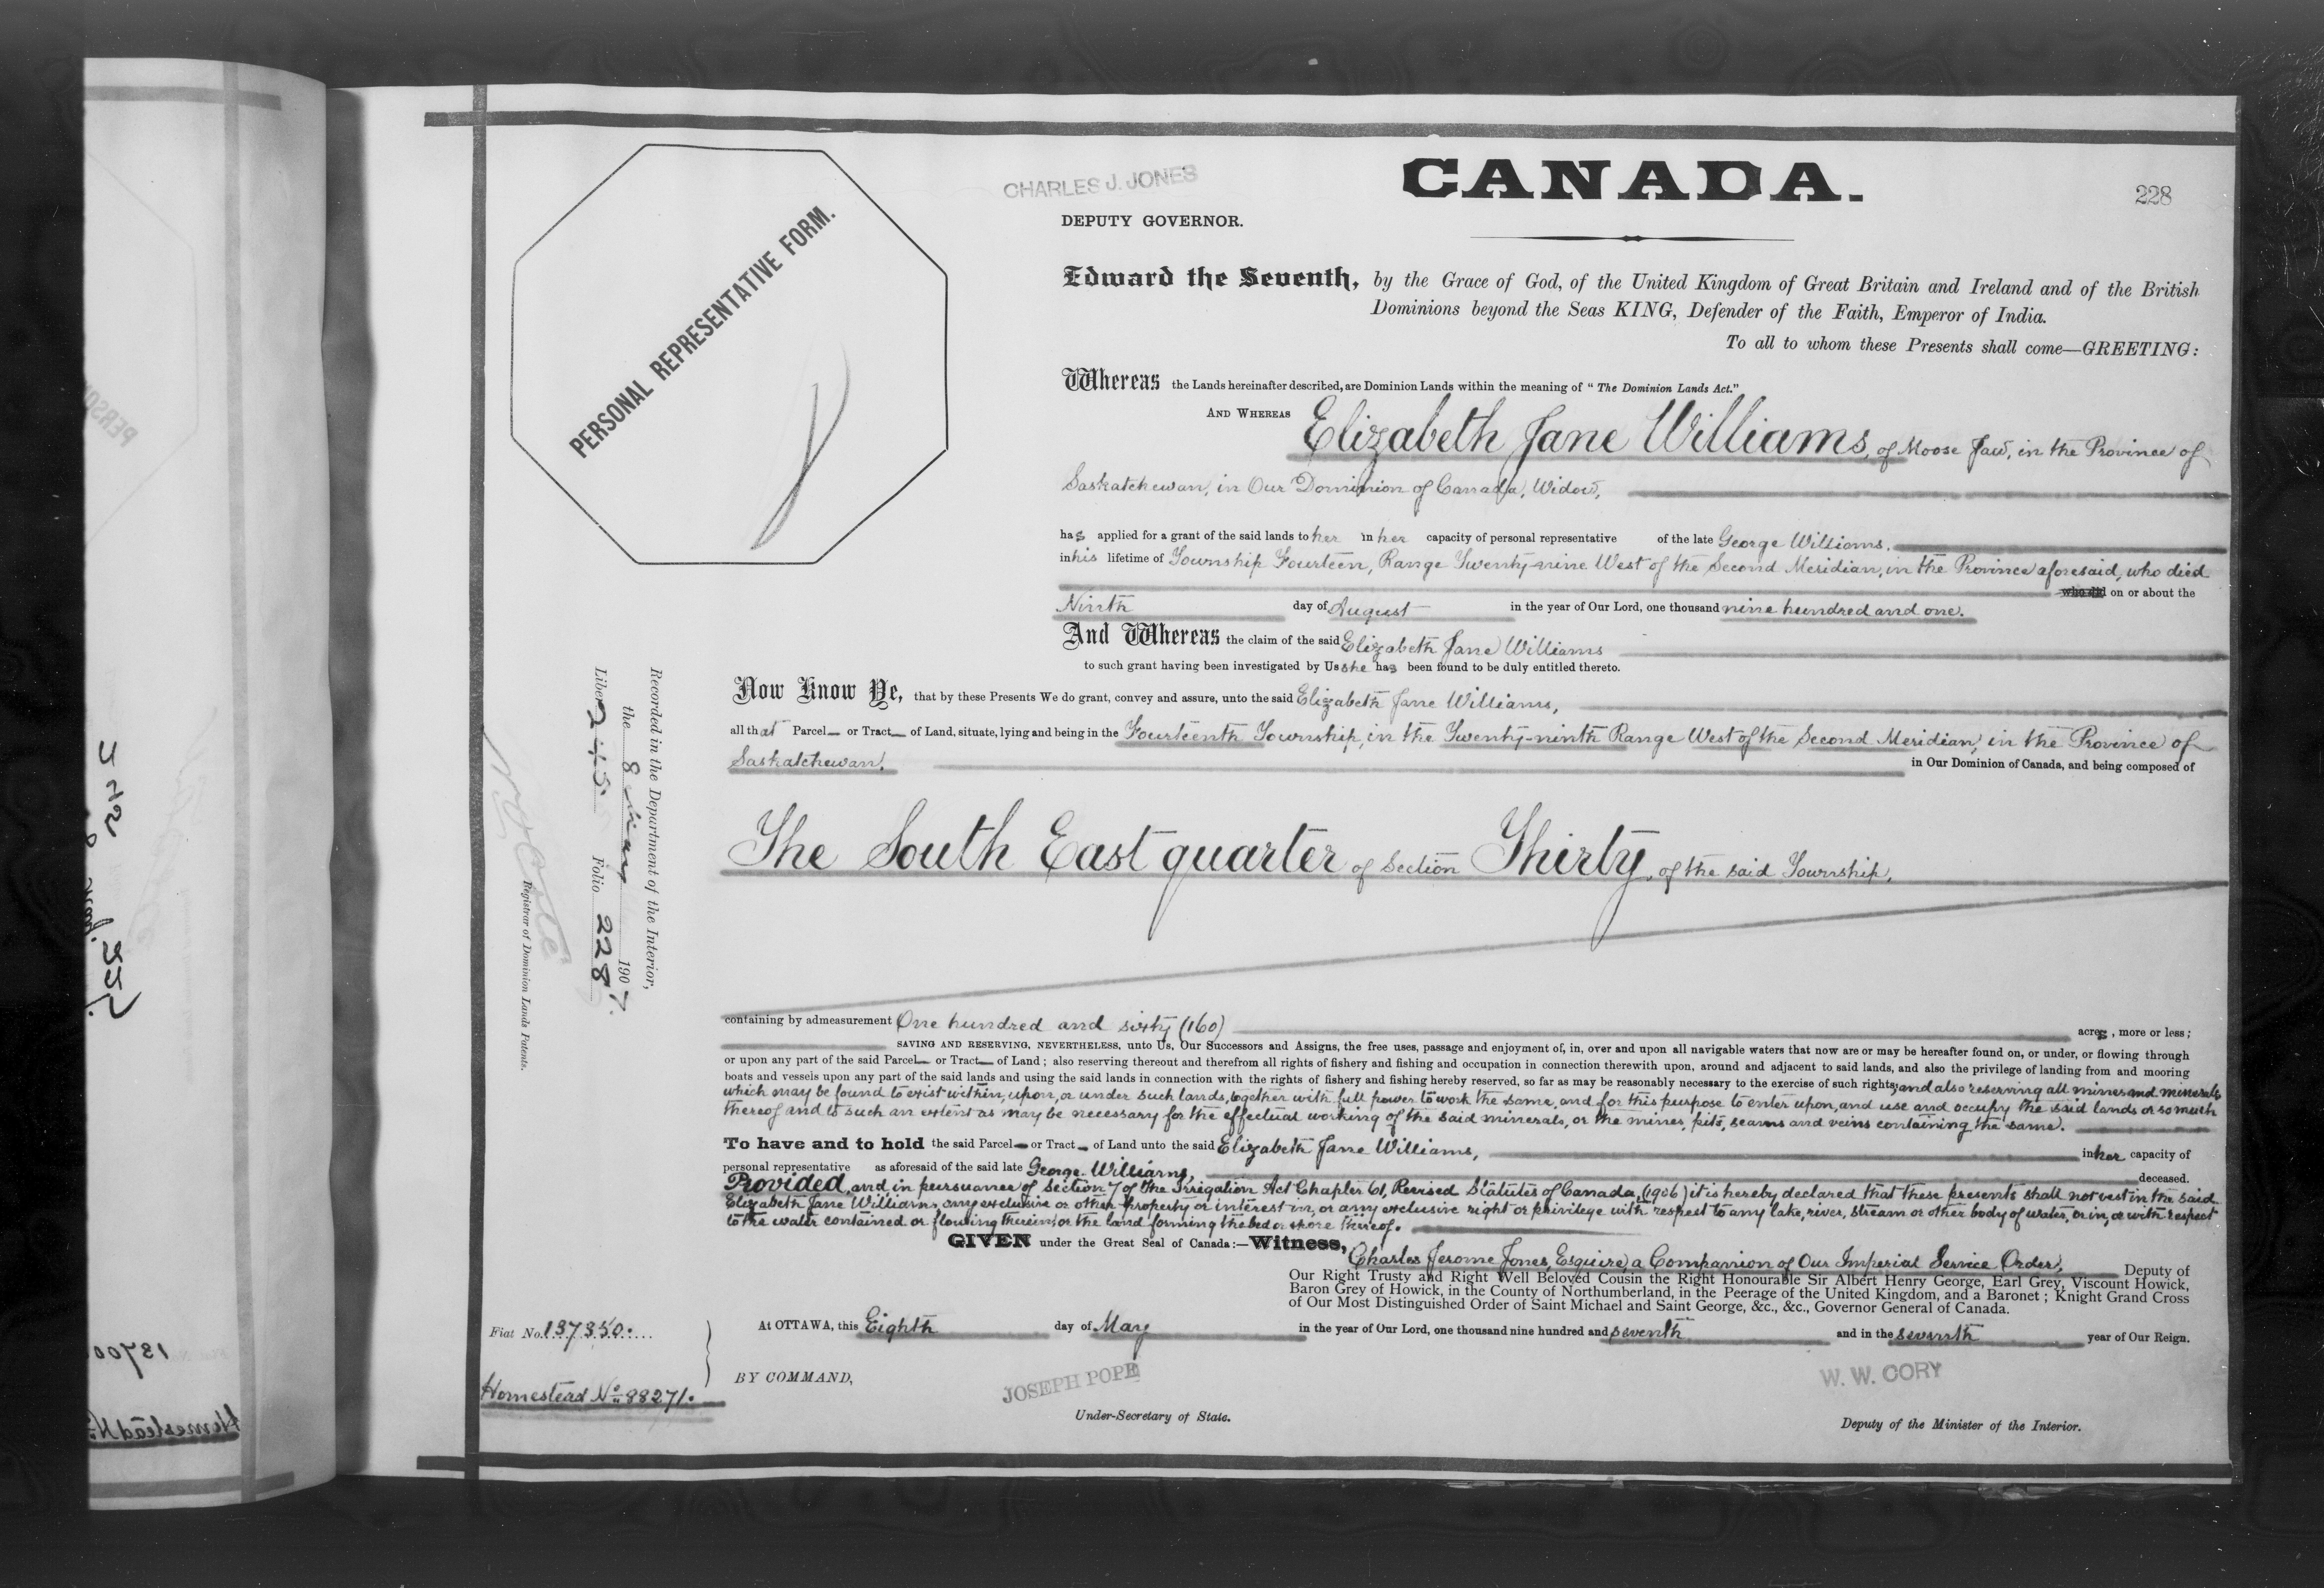 CHARLES J. JONES
CANADA.
228
DEPUTY GOVERNOR.
PERSONAL REPRESENTATIVE FORM.
Edward the Seventh, by the Grace of God, of the United Kingdom of Great Britain and Ireland and of the British
Dominions beyond the Seas KING, Defender of the Faith, Emperor of India.
To all to whom these Presents shall come—GREETING:
Whereas the Lands hereinafter described, are Dominion Lands within the meaning of "The Dominion Lands Act."
AND WHEREAS Elizabeth Jane Williams, of Moose Jaw, in the Province of
Saskatchewan, in Our Dominion of Canada, Widow,
has applied for a grant of the said lands to her in her capacity of personal representative of the late George Williams,
in his lifetime of Township Fourteen, Range Twenty-nine West of the Second Meridian, in the Province aforesaid, who died
who did on or about the
Ninth day of August in the year of Our Lord, one thousand nine hundred and one.
And Whereas the claim of the said Elizabeth Jane Williams
to such grant having been investigated by Us she has been found to be duly entitled thereto.
Now Know Ye, that by these Presents We do grant, convey and assure, unto the said Elizabeth Jane Williams,
all that Parcel or Tract of Land, situate, lying and being in the Fourteenth Township, in the Twenty-ninth Range West of the Second Meridian, in the Province of
Saskatchewan, in Our Dominion of Canada, and being composed of
The South East quarter of Section Thirty, of the said Township,
containing by admeasurement One hundred and sixty (160) acres, more or less;
SAVING AND RESERVING, NEVERTHELESS, unto Us, Our Successors and Assigns, the free uses, passage and enjoyment of, in, over and upon all navigable waters that now are or may be hereafter found on, or under, or flowing through
or upon any part of the said Parcel or Tract of Land; also reserving thereout and therefrom all rights of fishery and fishing and occupation in connection therewith upon, around and adjacent to said lands, and also the privilege of landing from and mooring
boats and vessels upon any part of the said lands and using the said lands in connection with the rights of fishery and fishing hereby reserved, so far as may be reasonably necessary to the exercise of such rights; and also reserving all mines and minerals
which may be found to exist within, upon, or under such lands, together with full power to work the same, and for this purpose to enter upon, and use and occupy the said lands or so much
thereof and to such an extent as may be necessary for the effectual working of the said minerals, or the mines, pits, seams and veins containing the same.
To have and to hold the said Parcel or Tract of Land unto the said Elizabeth Jane Williams, in her capacity of
personal representative as aforesaid of the said late George Williams, deceased.
Provided, and in pursuance of Section 7 of the Irrigation Act Chapter 61, Revised Statutes of Canada, (1906) it is hereby declared that these presents shall not vest in the said
Elizabeth Jane Williams, any exclusive or other property or interest in, or any exclusive right or privilege with respect to any lake, river, stream or other body of water, or in, or with respect
to the water contained or flowing therein, or the land forming the bed or shore thereof.
GIVEN under the Great Seal of Canada:—Witness, Charles Jerome Jones, Esquire, a Companion of Our Imperial Service Order, Deputy of
Our Right Trusty and Right Well Beloved Cousin the Right Honourable Sir Albert Henry George, Earl Grey, Viscount Howick,
Baron Grey of Howick, in the County of Northumberland, in the Peerage of the United Kingdom, and a Baronet; Knight Grand Cross
of Our Most Distinguished Order of Saint Michael and Saint George, &c., &c., Governor General of Canada.
At OTTAWA, this Eighth day of May in the year of Our Lord, one thousand nine hundred and seventh and in the seventh year of Our Reign.
BY COMMAND,
JOSEPH POPE
Under-Secretary of State.
W. W. CORY
Deputy of the Minister of the Interior.
Recorded in the Department of the Interior,
the 8 May 1907.
Liber 245. Folio 228
Registrar of Dominion Lands Patents.
Fiat No. 137350.
Homestead No 88271.